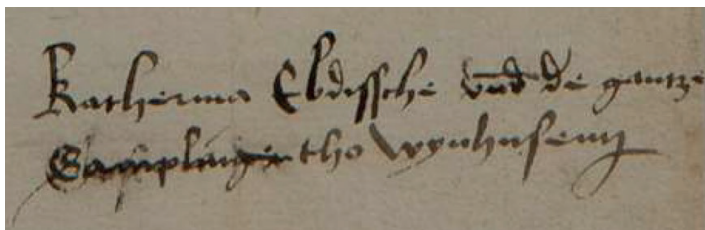 Katherina Ebdissche vnd de gantze
Samplinge tho Wynhusenn